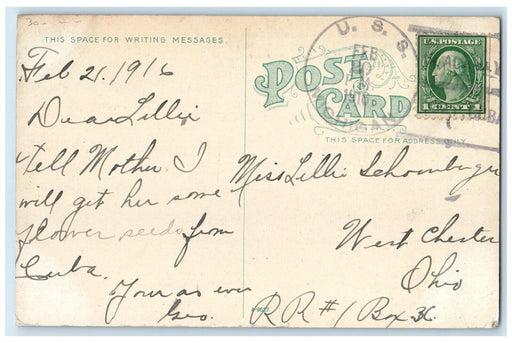 30-
THIS SPACE FOR WRITING MESSAGES.
Feb 21, 1916
Dear Lillie
tell Mother I
will get her some
flower seeds from
Cuba.
Your as ever
Geo.
POST CARD
THIS SPACE FOR ADDRESS ONLY.
U. S. S.
FEB
1916
U.S. POSTAGE
1 CENT 1
Miss Lillie Schomburger
West Chester
Ohio
R R # 1 Box 36.